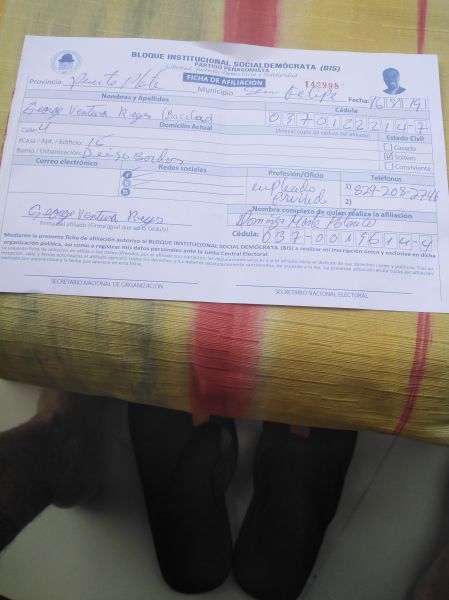 BLOQUE INSTITUCIONAL SOCIALDEMÓCRATA (BIS)
PARTIDO PENAGOMISTA
Libertad, Justicia, Democracia y Solidaridad
FICHA DE AFILIACIÓN
142998
Provincia: Puerto Plata Municipio San Felipe Fecha: 16/8/19
Nombres y Apellidos Cédula
George Ventura Reyes 0370122214-7
Domicilio Actual (Anexar copia de cédula del afiliado)
Calle: 4 Estado Civil
#Casa / Apt. / Edificio: 16 Casado
Barrio / Urbanización: Soltero
Conviviente
Correo electrónico Redes sociales Profesión/Oficio Teléfonos
empleado Privado 1) 829-208-2746
2)
George Ventura Reyes Nombre completo de quien realiza la afiliación
Firma del afiliado (Firme igual que en su Cédula) Dominga
Cédula: 037-0019614-4
Mediante la presente ficha de afiliación autorizo al BLOQUE INSTITUCIONAL SOCIALDEMÓCRATA (BIS) a realizar mi inscripción única y exclusiva en dicha
organización política, así como a registrar mis datos personales ante la Junta Central Electoral.
SECRETARIO NACIONAL DE ORGANIZACIÓN SECRETARIO NACIONAL ELECTORAL